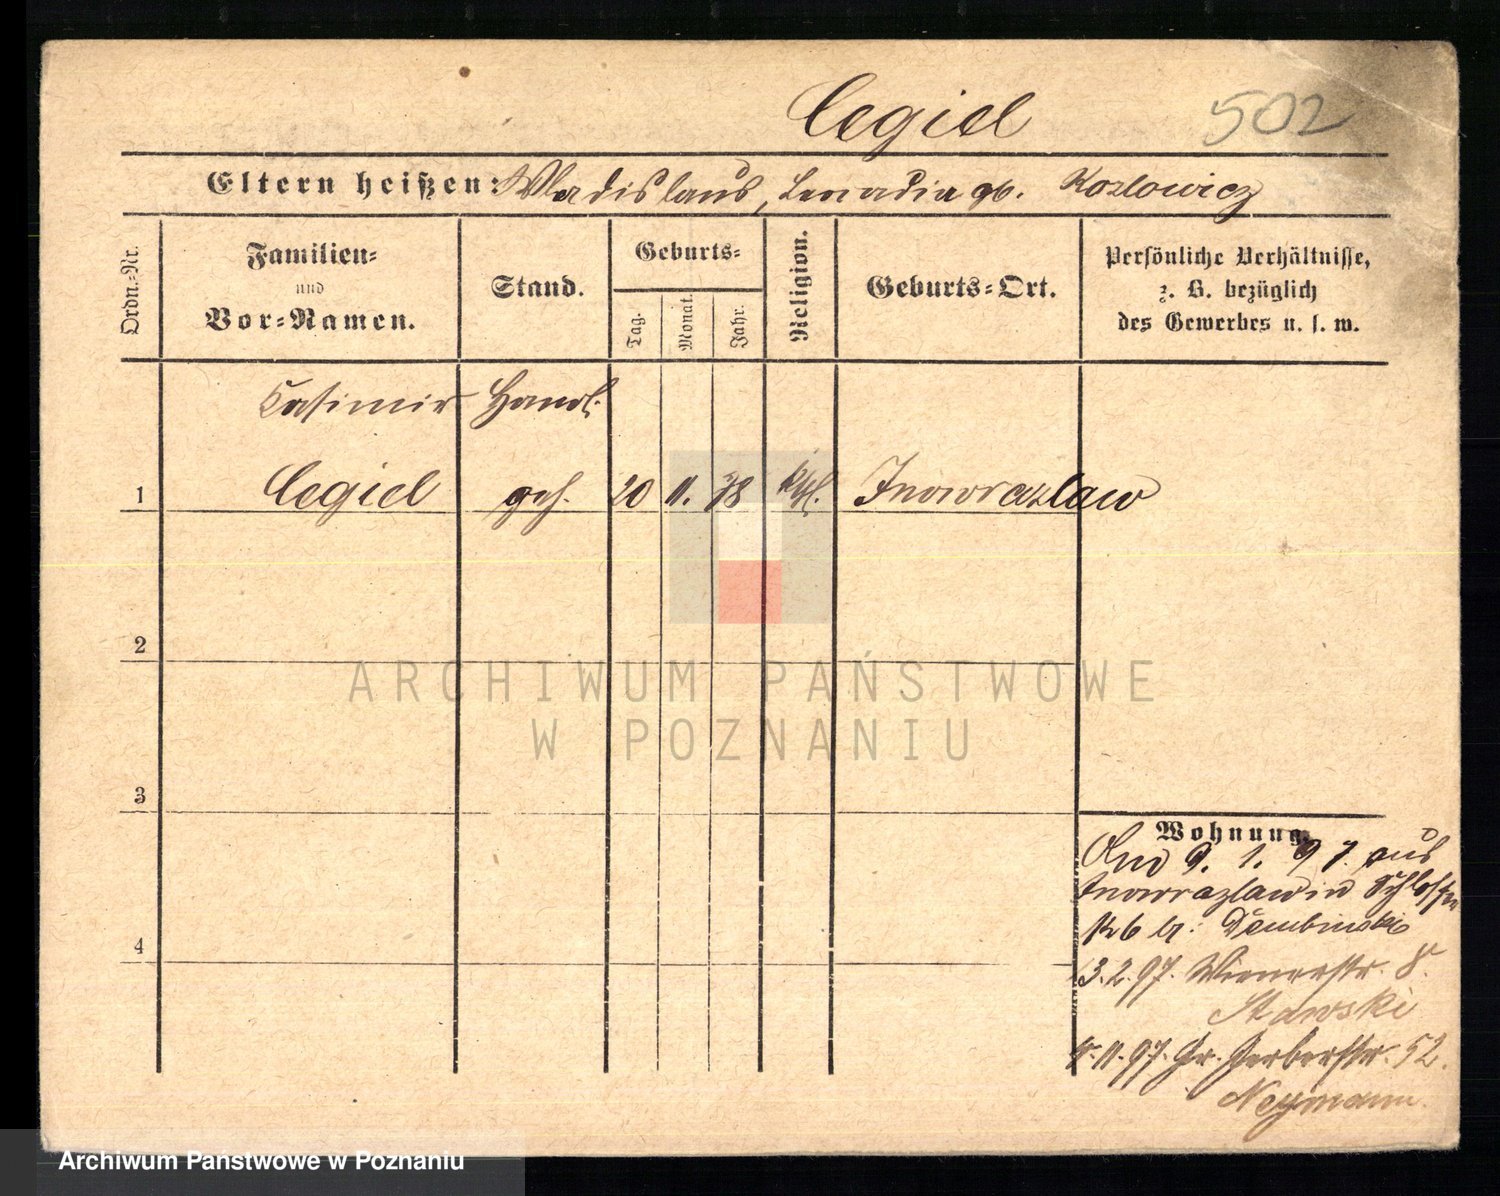 Cegiel 502
Eltern heißen: Wladislaus, Leocadia gb. Kozlowicz
Ordn.-Nr.
Familien-
und
Vor-Namen.
Stand.
Geburts-
Tag.
Monat.
Jahr.
Religion.
Geburts-Ort.
Persönliche Verhältnisse,
z. B. bezüglich
des Gewerbes u. s. w.
Casimir Handl.
1 Cegiel geh. 20 11. 78 kth. Inowrazlaw
2
ARCHIWUM PAŃSTWOWE
W POZNANIU
3
Wohnung.
9. 1. 97. aus
Inowrazlaw in Schlosstr
6 b: Dembinski
3.2.97. Wienerstr. 8.
Stawski
11.97. Gr. Gerberstr. 52.
Neymann.
4
Archiwum Państwowe w Poznaniu